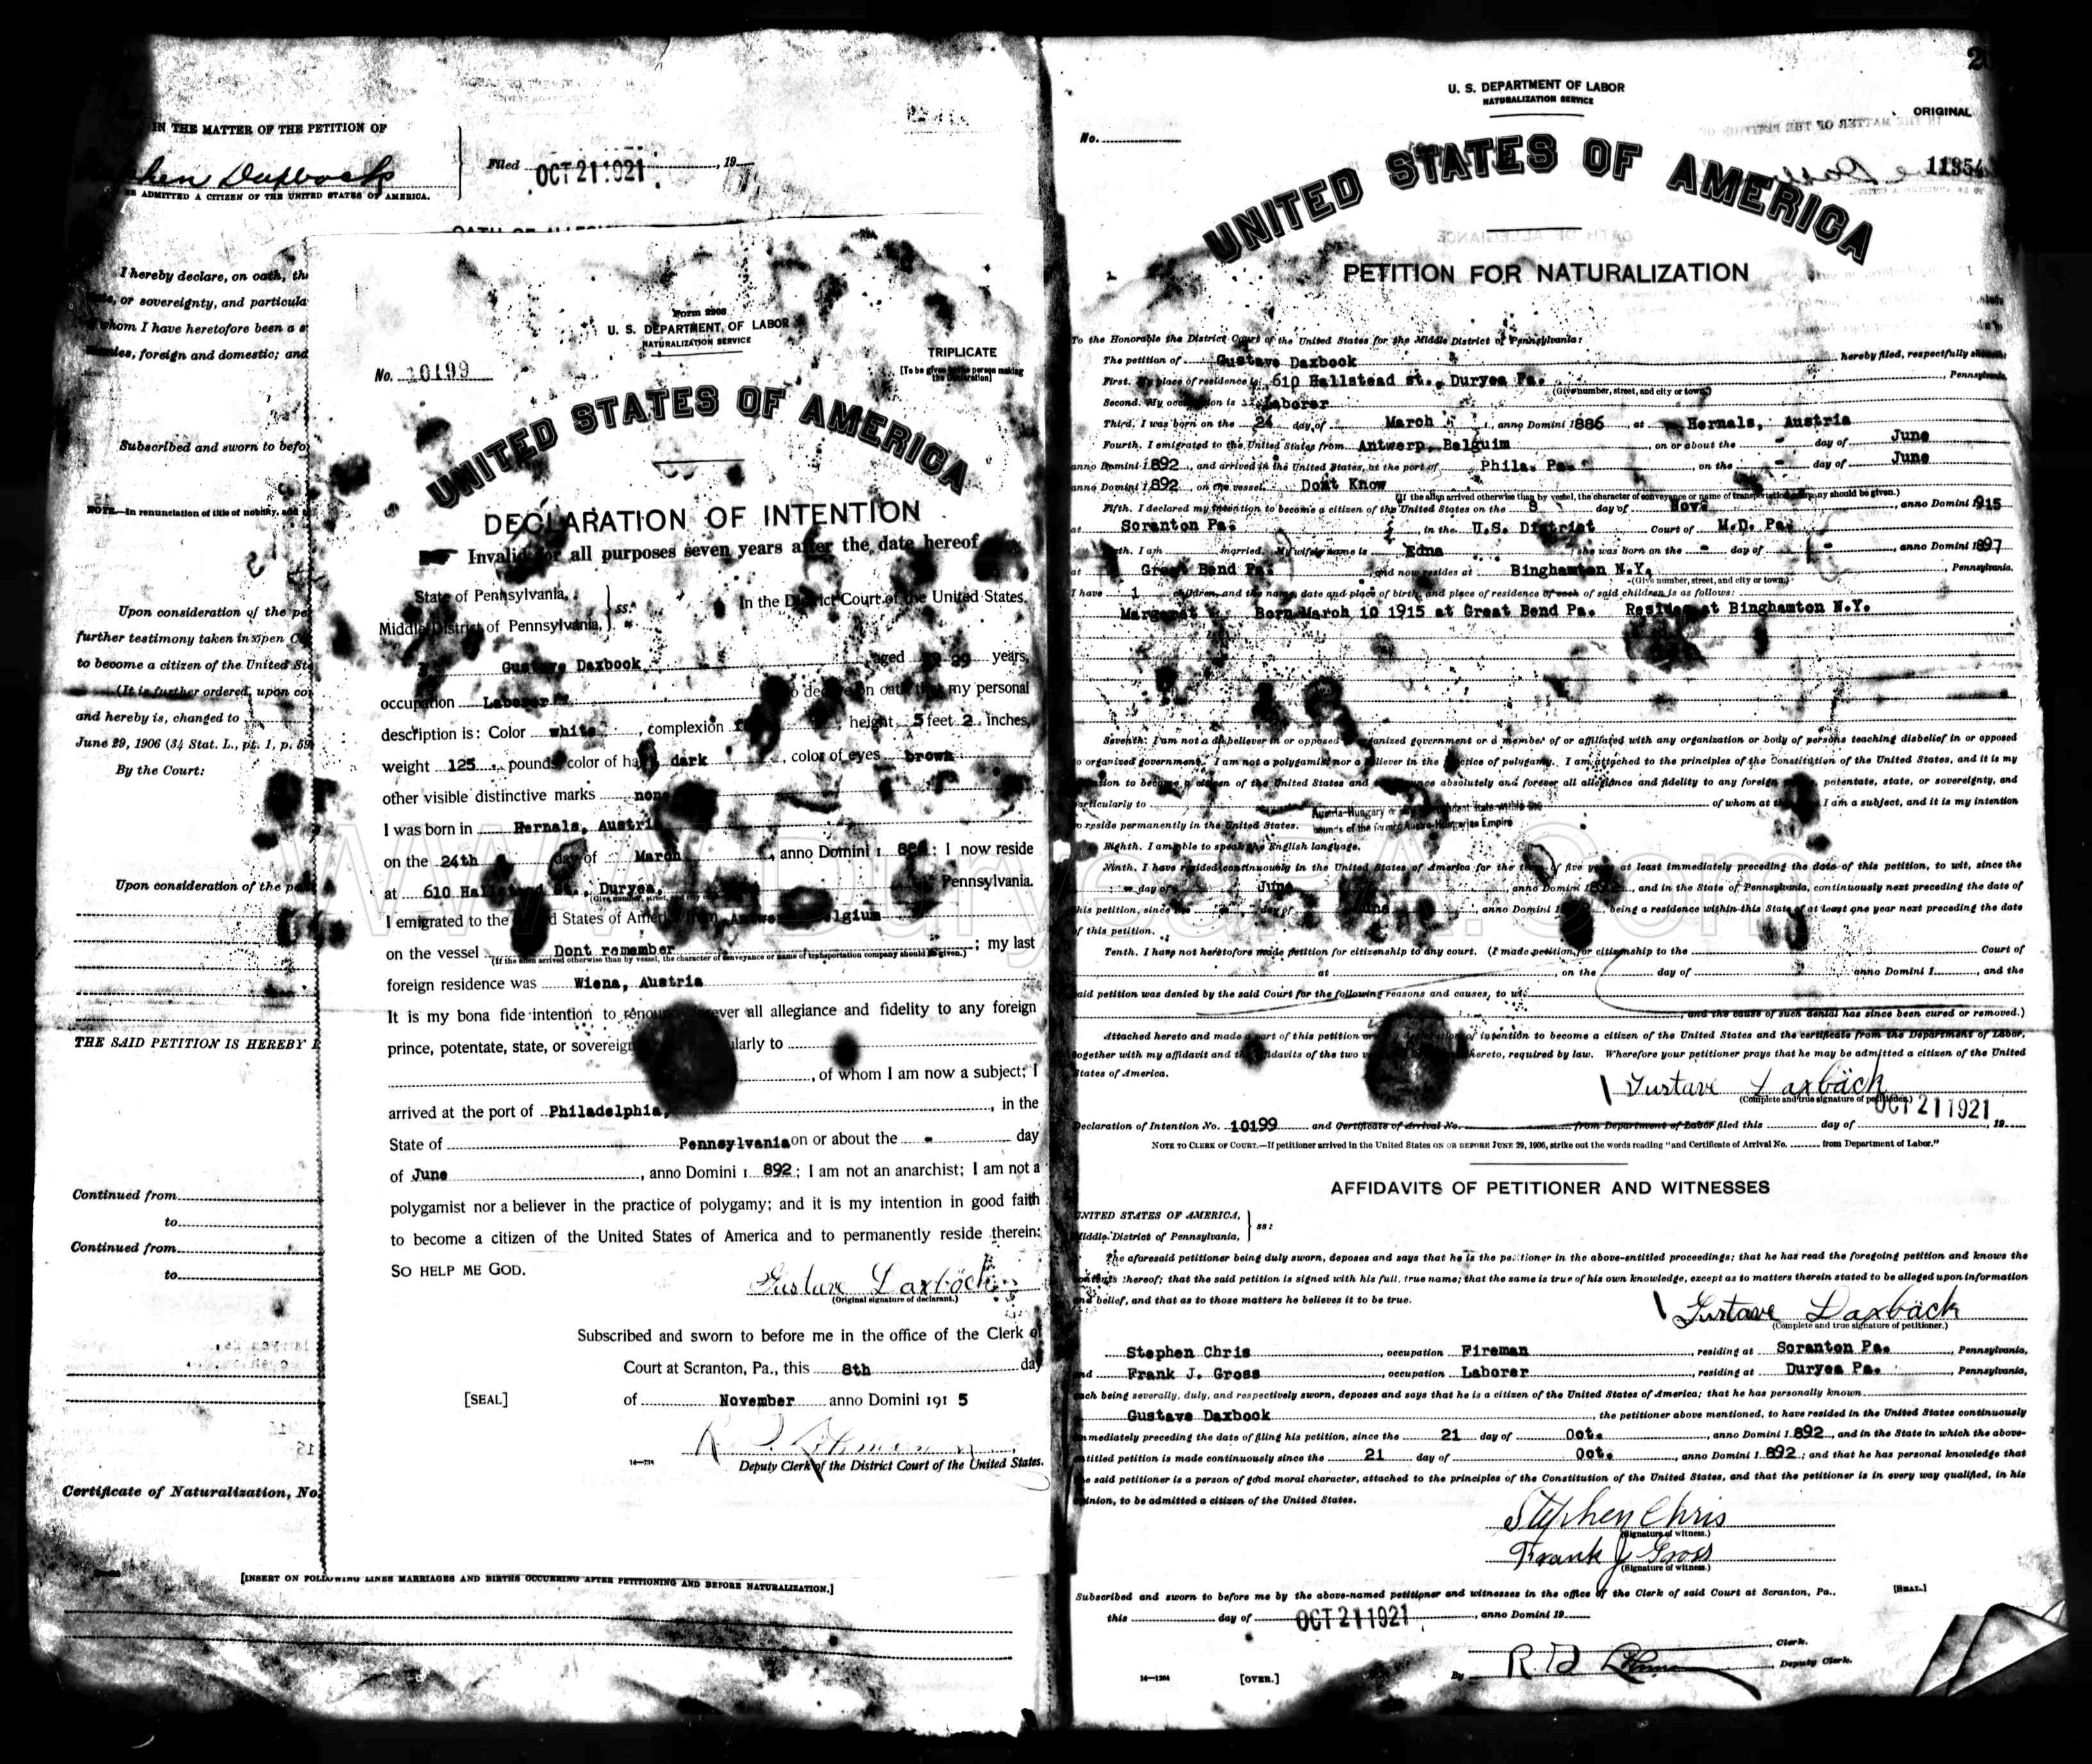 IN THE MATTER OF THE PETITION OF
hen Daxbock
ADMITTED A CITIZEN OF THE UNITED STATES OF AMERICA.
Filed OCT 21 1921, 19
I hereby declare, on oath, th
or sovereignty, and particula
whom I have heretofore been a s
foreign and domestic; and
Subscribed and sworn to befo
NOTE.—In renunciation of title of nobility, add
Upon consideration of the pe
further testimony taken in open C
to become a citizen of the United St
(It is further ordered, upon co
and hereby is, changed to
June 29, 1906 (34 Stat. L., pt. 1, p. 59
By the Court:
Upon consideration of the p
THE SAID PETITION IS HEREBY
Continued from
to
Continued from
to
Certificate of Naturalization, No
[INSERT ON FOLLOWING LINES MARRIAGES AND BIRTHS OCCURRING AFTER PETITIONING AND BEFORE NATURALIZATION.]
Form 2203
U. S. DEPARTMENT OF LABOR
NATURALIZATION SERVICE
TRIPLICATE
[To be given to the person making the Declaration]
No. 10199
UNITED STATES OF AMERICA
DECLARATION OF INTENTION
Invalid for all purposes seven years after the date hereof
State of Pennsylvania, ss:
In the District Court of the United States.
Middle District of Pennsylvania,
Gustave Daxbock aged 29 years,
occupation Laborer do declare on oath that my personal
description is: Color white, complexion height 5 feet 2 inches,
weight 125 pounds, color of hair dark, color of eyes brown
other visible distinctive marks none
I was born in Hernals, Austria
on the 24th day of March, anno Domini 1 886; I now reside
at 610 Hallstead St., Duryea, Pennsylvania.
(Give number, street, and city or town.)
I emigrated to the United States of America from Antwerp, Belgium
on the vessel Dont remember; my last
(If the alien arrived otherwise than by vessel, the character of conveyance or name of transportation company should be given.)
foreign residence was Wiena, Austria
It is my bona fide intention to renounce forever all allegiance and fidelity to any foreign
prince, potentate, state, or sovereignty, and particularly to
, of whom I am now a subject; I
arrived at the port of Philadelphia, , in the
State of Pennsylvania on or about the - day
of June, anno Domini 1 892; I am not an anarchist; I am not a
polygamist nor a believer in the practice of polygamy; and it is my intention in good faith
to become a citizen of the United States of America and to permanently reside therein:
SO HELP ME GOD.
Gustave Daxböck
(Original signature of declarant.)
Subscribed and sworn to before me in the office of the Clerk of
Court at Scranton, Pa., this 8th day
[SEAL] of November anno Domini 191 5
14—734
Deputy Clerk of the District Court of the United States.
U. S. DEPARTMENT OF LABOR
NATURALIZATION SERVICE
ORIGINAL
No.
11354
UNITED STATES OF AMERICA
PETITION FOR NATURALIZATION
To the Honorable the District Court of the United States for the Middle District of Pennsylvania:
The petition of Gustave Daxbock hereby filed, respectfully shows:
First. My place of residence is 610 Hallstead st., Duryea Pa. , Pennsylvania.
(Give number, street, and city or town.)
Second. My occupation is Laborer
Third. I was born on the 24 day of March, anno Domini 1886 at Hernals, Austria
Fourth. I emigrated to the United States from Antwerp, Belguim on or about the - day of June
anno Domini 1892, and arrived in the United States, at the port of Phila. Pa. , on the - day of June
anno Domini 1892, on the vessel Dont Know
(If the alien arrived otherwise than by vessel, the character of conveyance or name of transportation company should be given.)
Fifth. I declared my intention to become a citizen of the United States on the 8 day of Nov., anno Domini 1915
at Soranton Pa. in the U.S. District Court of M.D. Pa.
Sixth. I am married. My wife's name is Edna she was born on the - day of - , anno Domini 1897
at Great Bend Pa. and now resides at Binghamton N.Y. , Pennsylvania.
(Give number, street, and city or town.)
I have 1 children, and the name, date and place of birth, and place of residence of each of said children is as follows:
Margaret Born March 10 1915 at Great Bend Pa. Resides at Binghamton N.Y.
Seventh. I am not a disbeliever in or opposed to organized government or a member of or affiliated with any organization or body of persons teaching disbelief in or opposed
to organized government. I am not a polygamist nor a believer in the practice of polygamy. I am attached to the principles of the Constitution of the United States, and it is my
intention to become a citizen of the United States and to renounce absolutely and forever all allegiance and fidelity to any foreign potentate, state, or sovereignty, and
particularly to of whom at this I am a subject, and it is my intention
Austria-Hungary or independent state within the
bounds of the former Austro-Hungarian Empire
to reside permanently in the United States.
Eighth. I am able to speak the English language.
Ninth. I have resided continuously in the United States of America for the term of five years at least immediately preceding the date of this petition, to wit, since the
- day of June, anno Domini 1892, and in the State of Pennsylvania, continuously next preceding the date of
this petition, since day of June, anno Domini 1 , being a residence within this State of at least one year next preceding the date
of this petition.
Tenth. I have not heretofore made petition for citizenship to any court. (I made petition for citizenship to the Court of
at , on the day of anno Domini 1 , and the
said petition was denied by the said Court for the following reasons and causes, to wit:
, and the cause of such denial has since been cured or removed.)
Attached hereto and made a part of this petition are my declaration of intention to become a citizen of the United States and the certificate from the Department of Labor,
together with my affidavit and the affidavits of the two hereto, required by law. Wherefore your petitioner prays that he may be admitted a citizen of the United
States of America.
Gustave Daxbäck
(Complete and true signature of petitioner.)
OCT 21 1921
Declaration of Intention No. 10199 and Certificate of Arrival No. from Department of Labor filed this day of , 19
NOTE TO CLERK OF COURT.—If petitioner arrived in the United States ON OR BEFORE JUNE 29, 1906, strike out the words reading "and Certificate of Arrival No. from Department of Labor."
AFFIDAVITS OF PETITIONER AND WITNESSES
UNITED STATES OF AMERICA, ss:
Middle District of Pennsylvania,
The aforesaid petitioner being duly sworn, deposes and says that he is the petitioner in the above-entitled proceedings; that he has read the foregoing petition and knows the
contents thereof; that the said petition is signed with his full, true name; that the same is true of his own knowledge, except as to matters therein stated to be alleged upon information
and belief, and that as to those matters he believes it to be true.
Gustave Daxbäck
(Complete and true signature of petitioner.)
Stephen Chris, occupation Fireman, residing at Soranton Pa. , Pennsylvania,
and Frank J. Gross, occupation Laborer, residing at Duryea Pa. , Pennsylvania,
each being severally, duly, and respectively sworn, deposes and says that he is a citizen of the United States of America; that he has personally known
Gustave Daxbook, the petitioner above mentioned, to have resided in the United States continuously
immediately preceding the date of filing his petition, since the 21 day of Oct., anno Domini 1892, and in the State in which the above-
entitled petition is made continuously since the 21 day of Oct., anno Domini 1892; and that he has personal knowledge that
the said petitioner is a person of good moral character, attached to the principles of the Constitution of the United States, and that the petitioner is in every way qualified, in his
opinion, to be admitted a citizen of the United States.
Stephen Chris
(Signature of witness.)
Frank J Gross
(Signature of witness.)
Subscribed and sworn to before me by the above-named petitioner and witnesses in the office of the Clerk of said Court at Scranton, Pa.,
[SEAL.]
this day of OCT 21 1921, anno Domini 19
Clerk.
14—1294 [OVER.] By Deputy Clerk.